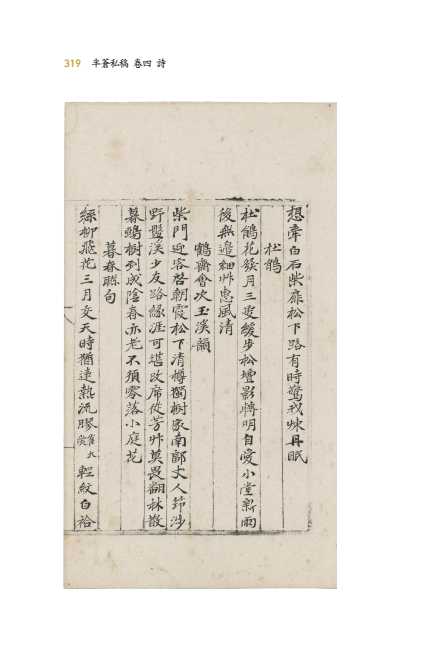 319 半蒼私稿 卷四 詩
想牽白石柴扉松下路有時驚我煉丹眠
杜鵑
杜鵑花發月三更緩步松壇影轉明自愛小堂新雨
後無邊細艸惠風清
鶴齋會次玉溪韻
柴門迎客啓朝霞松下清樽獨樹家南郭丈人節涉
野豎溪少友路緣涯可堪改席依芳艸莫畏翻林散
暮鴉樹列成陰春亦老不須零落小庭花
暮春聯句
綠柳飛花三月交天時猶遠熱流膠 輕紋白袷